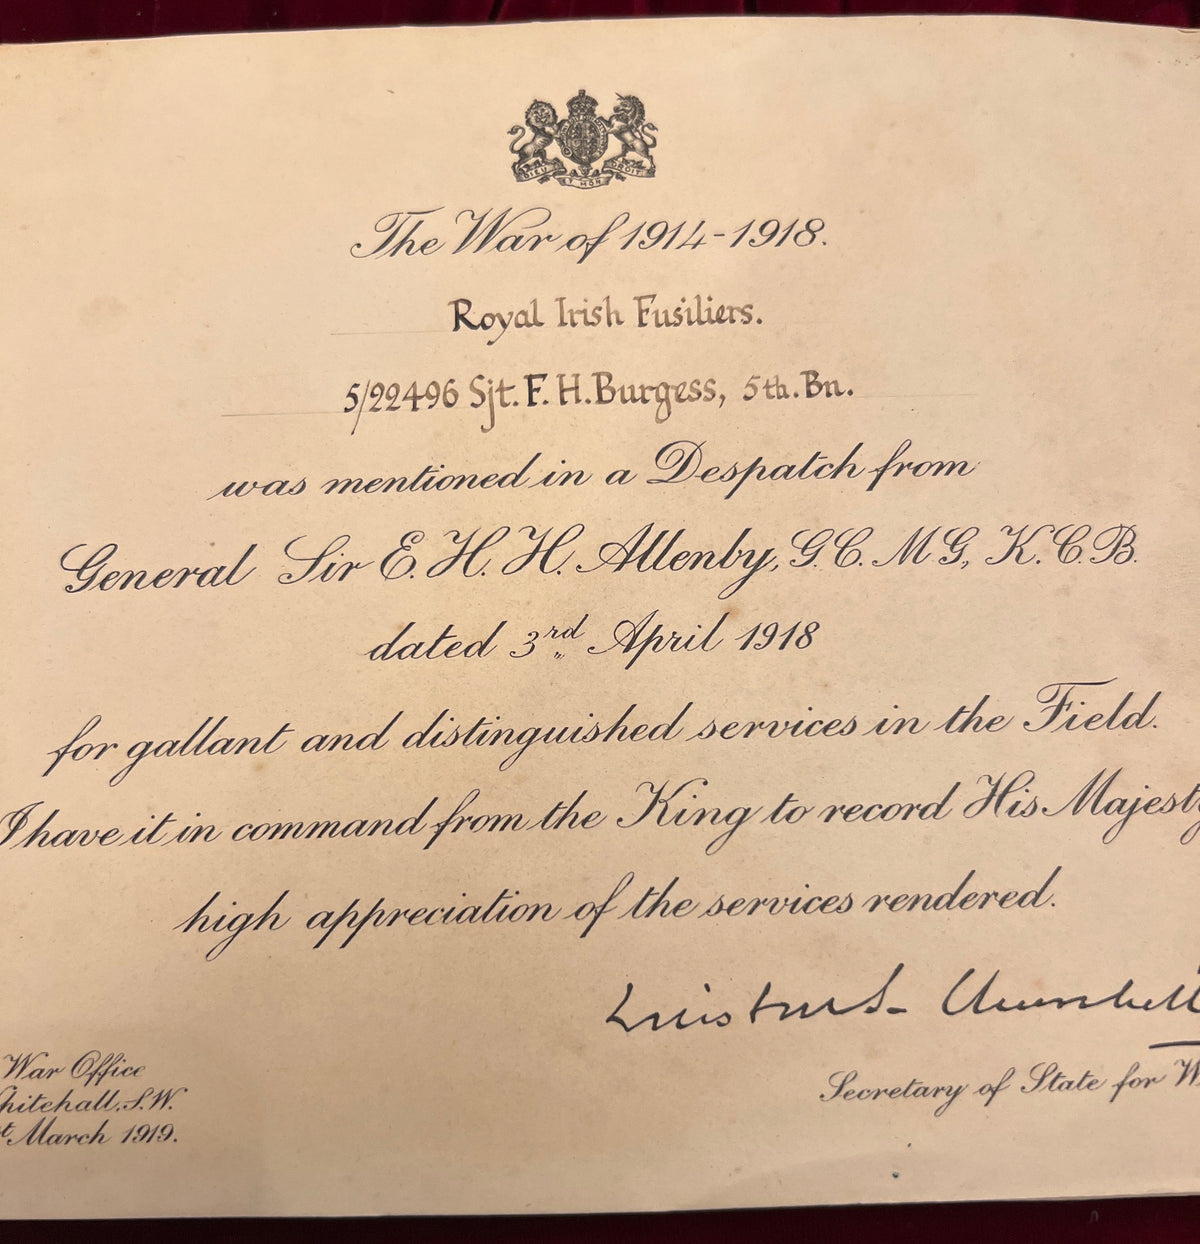 DIEU ET MON DROIT
The War of 1914-1918.
Royal Irish Fusiliers.
5/22496 Sjt. F. H. Burgess, 5th. Bn.
was mentioned in a Despatch from
General Sir E. H. H. Allenby, G.C.M.G., K.C.B.
dated 3rd April 1918
for gallant and distinguished services in the Field.
I have it in command from the King to record His Majesty
high appreciation of the services rendered.
Winston S. Churchill
Secretary of State for W
War Office
hitehall, S.W.
st March 1919.